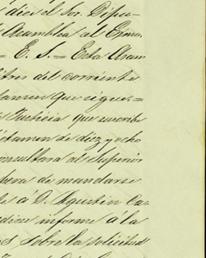 dice el Sor. Dipu-
Asamblea al Exmo.
= E. S. = Esta Asam
del corriente
que sigue. =
Justicia que suscribe
dictamen de diez y ocho
consultara al Superior
de mandarse
á D. Agustin Ca-
informe á la
sobre la solicitud